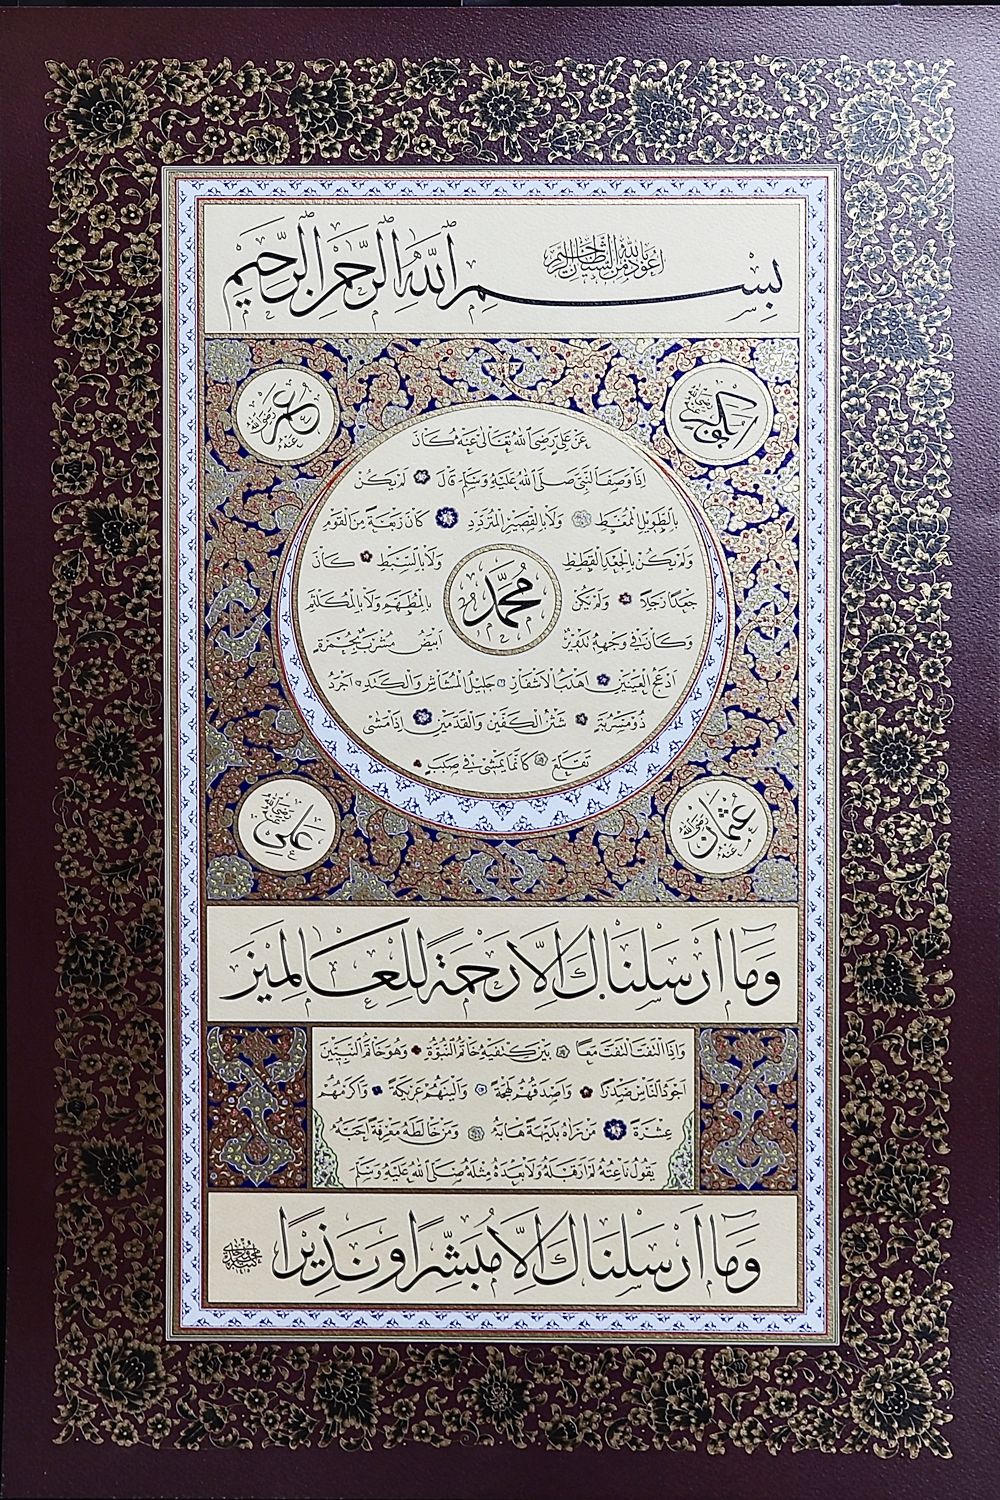 بِسْمِ اللّٰهِ الرَّحْمٰنِ الرَّحِيمِ
اعوذ بالله من الشيطان الرجيم
ابوبكر
رضى الله عنه
عمر
رضى الله عنه
عَنْ عَلِيٍّ رَضِيَ اللهُ تَعَالٰى عَنْهُ كَانَ
اِذَا وَصَفَ النَّبِيَّ صَلَّى اللهُ عَلَيْهِ وَسَلَّمَ قَالَ لَمْ يَكُنْ
بِالطَّوِيلِ الْمُمَّغِطِ وَلَا بِالْقَصِيرِ الْمُتَرَدِّدِ كَانَ رَبْعَةً مِنَ الْقَوْمِ
وَلَمْ يَكُنْ بِالْجَعْدِ الْقَطَطِ وَلَا بِالسَّبْطِ كَانَ
جَعْدًا رَجِلًا وَلَمْ يَكُنْ بِالْمُطَهَّمِ وَلَا بِالْمُكَلْثَمِ
مُحَمَّد
وَكَانَ فِي وَجْهِهِ تَدْوِيرٌ اَبْيَضُ مُشْرَبٌ بِحُمْرَةٍ
اَدْعَجُ الْعَيْنَيْنِ اَهْدَبُ الْاَشْفَارِ جَلِيلُ الْمُشَاشِ وَالْكَتَدِ اَجْرَدُ
ذُو مَسْرُبَةٍ شَثْنُ الْكَفَّيْنِ وَالْقَدَمَيْنِ اِذَا مَشٰى
تَقَلَّعَ كَاَنَّمَا يَمْشِي فِي صَبَبٍ
عثمان
رضى الله عنه
على
رضى الله عنه
وَمَا اَرْسَلْنَاكَ اِلَّا رَحْمَةً لِلْعَالَمِينَ
وَاِذَا الْتَفَتَ الْتَفَتَ مَعًا بَيْنَ كَتِفَيْهِ خَاتَمُ النُّبُوَّةِ وَهُوَ خَاتَمُ النَّبِيِّينَ
اَجْوَدُ النَّاسِ صَدْرًا وَاَصْدَقُهُمْ لَهْجَةً وَاَلْيَنُهُمْ عَرِيكَةً وَاَكْرَمُهُمْ
عِشْرَةً مَنْ رَاٰهُ بَدِيهَةً هَابَهُ وَمَنْ خَالَطَهُ مَعْرِفَةً اَحَبَّهُ
يَقُولُ نَاعِتُهُ لَمْ اَرَ قَبْلَهُ وَلَا بَعْدَهُ مِثْلَهُ صَلَّى اللهُ عَلَيْهِ وَسَلَّمَ
وَمَا اَرْسَلْنَاكَ اِلَّا مُبَشِّرًا وَنَذِيرًا